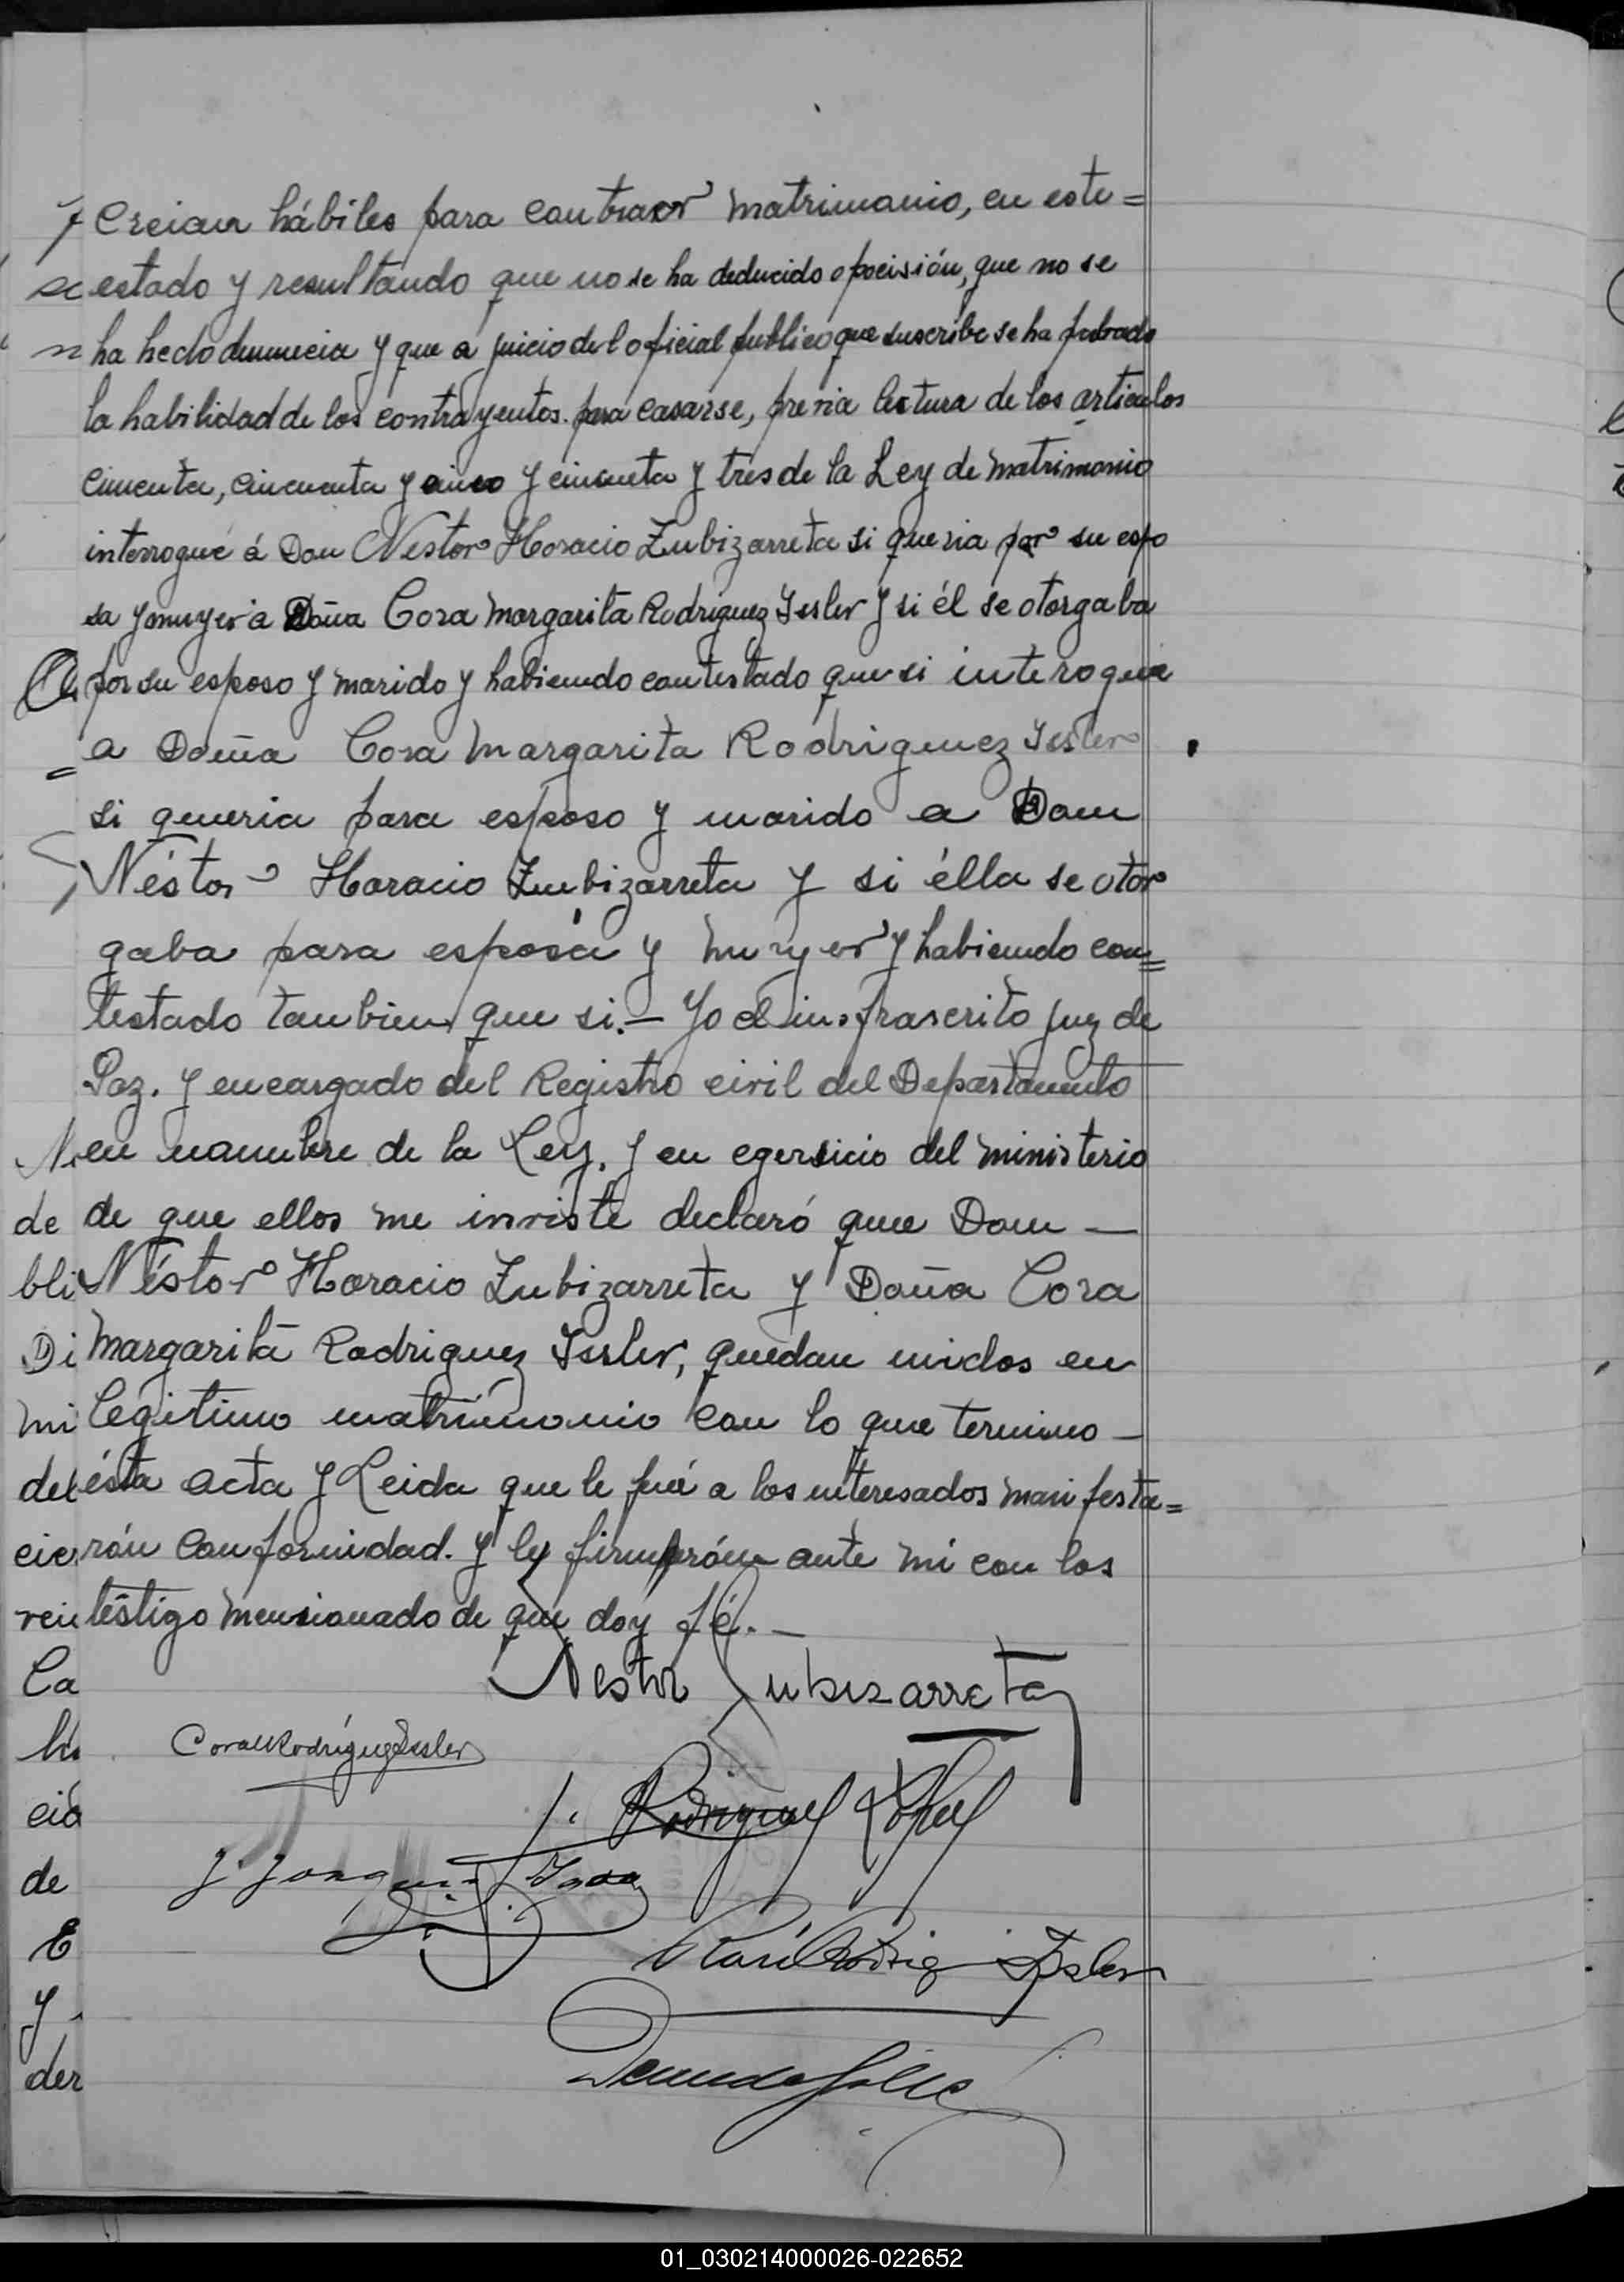 creian hábiles para contraer matrimonio, en este=
estado y resultando que no se ha deducido opocisión, que no se
ha hecho denuncia y que a juicio del oficial publico que suscribe se ha probado
la habilidad de los contrayentes. para casarse, previa lectura de los articulos
cincuenta, cincuenta y cinco y cincuenta y tres de la Ley de matrimonio
interrogué á Don Nestor Horacio Zubizarreta si queria por su espo
sa y muyer á Doña Cora Margarita Rodriguez Issler y si él se otorgaba
por su esposo y marido y habiendo contestado que si interogué
a Doña Cora Margarita Rodriguez Issler
si queria para esposo y marido a Don
Néstor Horacio Zubizarreta y si élla se otor
gaba para esposa y muyer y habiendo con=
testado tanbien que si.— Yo el infrascrito juez de
Paz. y encargado del Registro civil del Departamento
en nombre de la Ley. y en egersicio del ministerio
de que ellos me inviste declaró que Don —
Néstor Horacio Zubizarreta y Doña Cora
Margarita Rodriguez Issler, quedan unidos en
legitimo matrimonio con lo que termino —
ésta acta y Leida que le fué a los interesados manifesta=
rón conformidad. y la firmarón ante mi con los
téstigo mensionado de que doy fé. —
Nestor Zubizarreta
Cora M Rodríguez Issler
J. Rodriguez López
J. Joaquin
Raúl Rodrig Issler
01_030214000026-022652